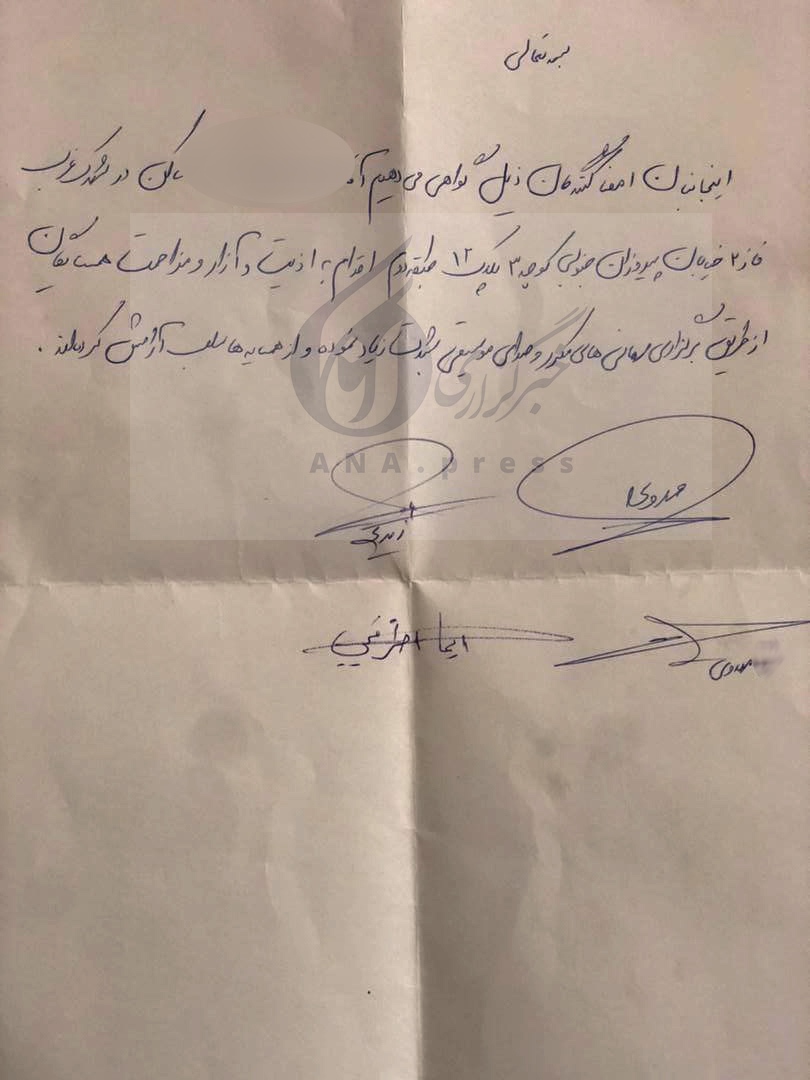 بسمه تعالی
اینجانبان امضا کنندگان ذیل گواهی می دهیم که ساکن در شهرک غرب
فاز ۲ خیابان پیروزان جنوبی کوچه ۳ پلاک ۱۲ طبقه دوم اقدام به اذیت و آزار و مزاحمت همسایگان
از طریق برگزاری مهمانی های مکرر و صدای موسیقی بشدت زیاد نموده و از همسایه ها سلب آرامش کرده‌اند .
خبرگزاری آنا
ANA.press
مهدوی